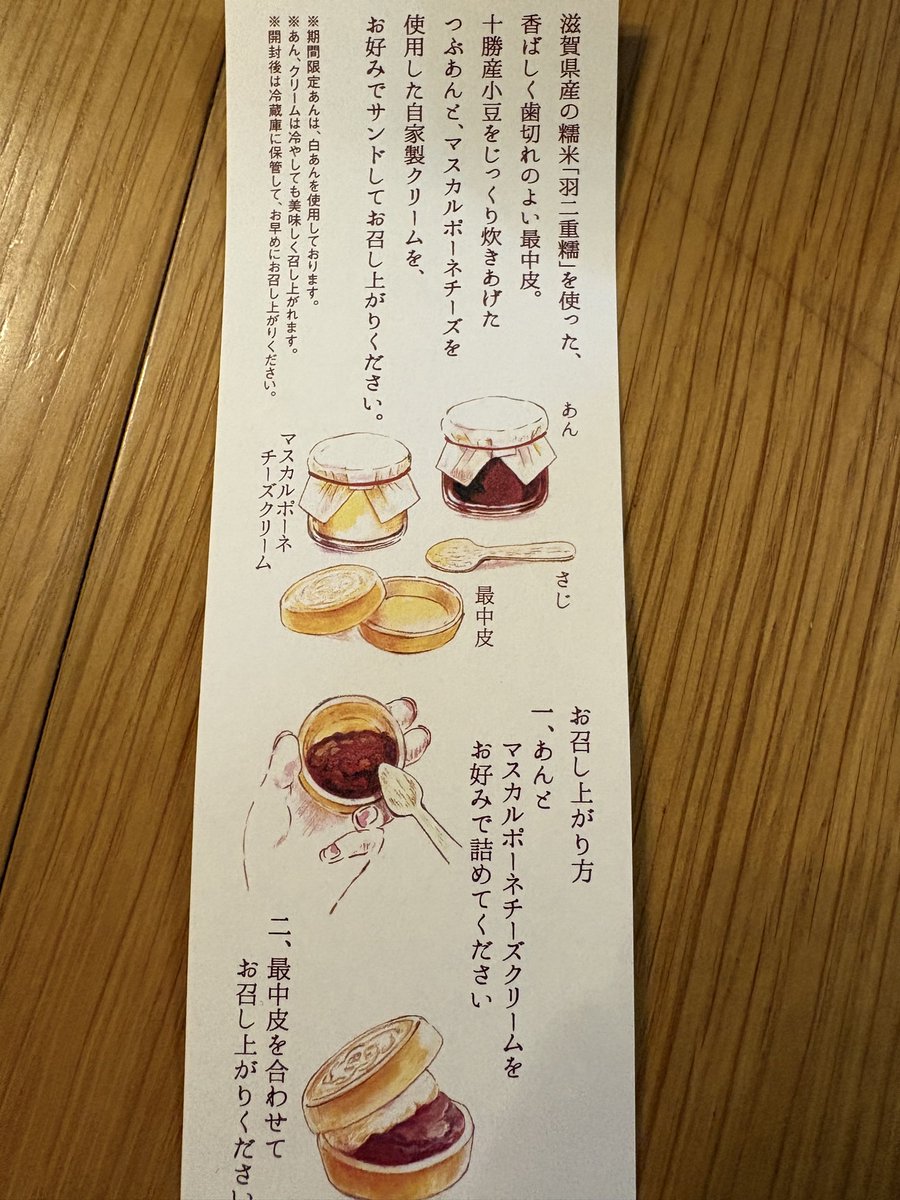 滋賀県産の糯米「羽二重糯」を使った、
香ばしく歯切れのよい最中皮。
十勝産小豆をじっくり炊きあげた
つぶあんと、マスカルポーネチーズを
使用した自家製クリームを、
お好みでサンドしてお召し上がりください。
※期間限定あんは、白あんを使用しております。
※あん、クリームは冷やしても美味しく召し上がれます。
※開封後は冷蔵庫に保管して、お早めにお召し上がりください。
あん
マスカルポーネ
チーズクリーム
さじ
最中皮
お召し上がり方
一、あんと
マスカルポーネチーズクリームを
お好みで詰めてください
二、最中皮を合わせて
お召し上がりください